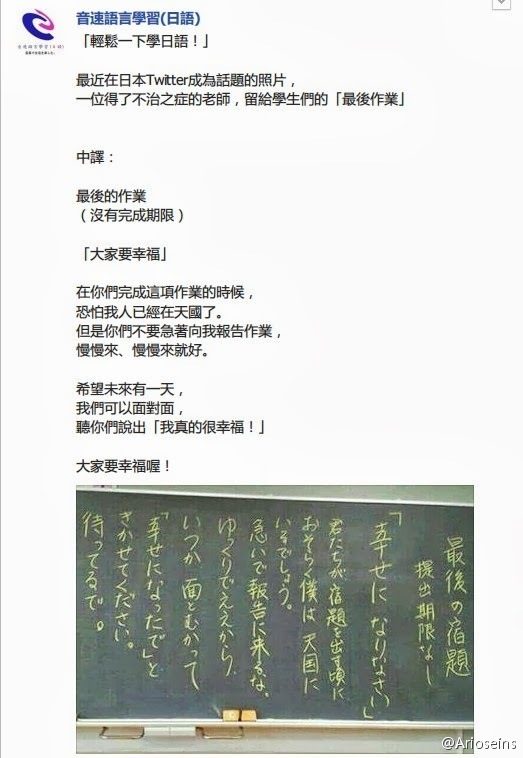 音速語言學習(日語)
「輕鬆一下學日語！」
最近在日本Twitter成為話題的照片，
一位得了不治之症的老師，留給學生們的「最後作業」
中譯：
最後的作業
（沒有完成期限）
「大家要幸福」
在你們完成這項作業的時候，
恐怕我人已經在天國了。
但是你們不要急著向我報告作業，
慢慢來、慢慢來就好。
希望未來有一天，
我們可以面對面，
聽你們說出「我真的很幸福！」
大家要幸福喔！
最後の宿題
提出期限なし
「幸せになりなさい」
君たちが宿題を出す頃に
おそらく僕は天国に
いるでしょう。
急いで報告に来るな。
ゆっくりでええから
いつか面とむかって
「幸せになったで」と
きかせてください。
待ってるで。
@Arioseins